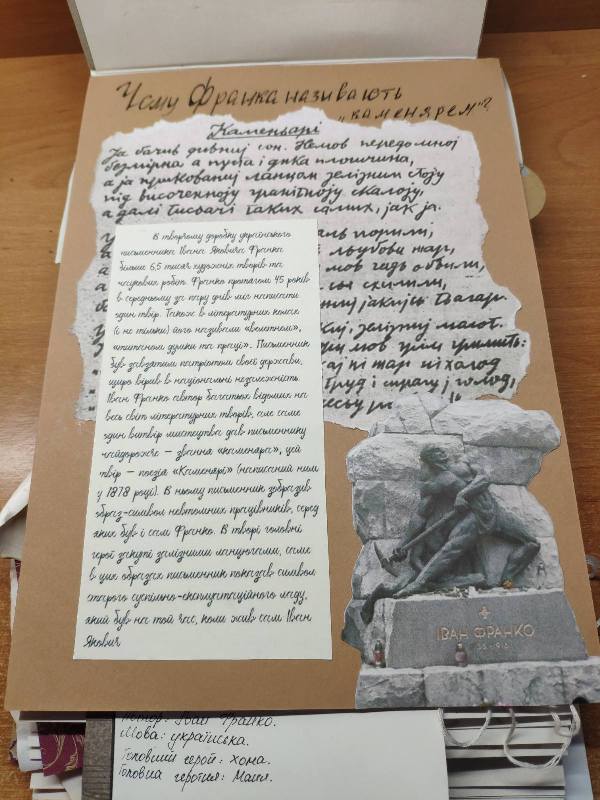 Чому Франка називають
„каменярем"?
Каменьарі
Ја бачив дивниј сон. Немов передомној
безмірна а пуста і дика площчина,
а ја прикованиј ланцом зелізним стоју
під височенноју ґранітноју скалоју,
а далі тисьачі таких самих, јак ја.
порили,
льубови жар,
мов гадь обвили,
схилили,
јакијсь тьагар.
зелізниј молот.
мов грім гримить:
ні жар ні холод
труд і спрагу ј голод,
В творчому доробку українського
письменника Івана Яковича Франка
більше 6,5 тисяч художніх творів та
наукових робіт. Франко протягом 45 років
в середньому за пару днів міг написати
один твір. Також в літературних колах
(і не тільки) його називали «велетнем»,
«титаном думки та праці». Письменник
був завзятим патріотом своєї держави,
щиро вірив в національні незалежність.
Іван Франко автор багатьох відомих на
весь світ літературних творів, але саме
один витвір мистецтва дав письменнику
найдорожче – звання «каменяра», цей
твір – поезія «Каменярі» (написаний ним
у 1878 році). В ньому письменник зобразив
образ-символ невтомних працівників, серед
яких був і сам Франко. В творі головні
герої закуті залізними ланцюгами, саме
в цих образах письменник показав символ
старого суспільно-експлуатаційного ладу,
який був на той час, коли жив сам Іван
Якович
ІВАН ФРАНКО
Автор: Іван Франко.
Мова: українська.
Головний герой: хома.
Головна героїня: Маня.